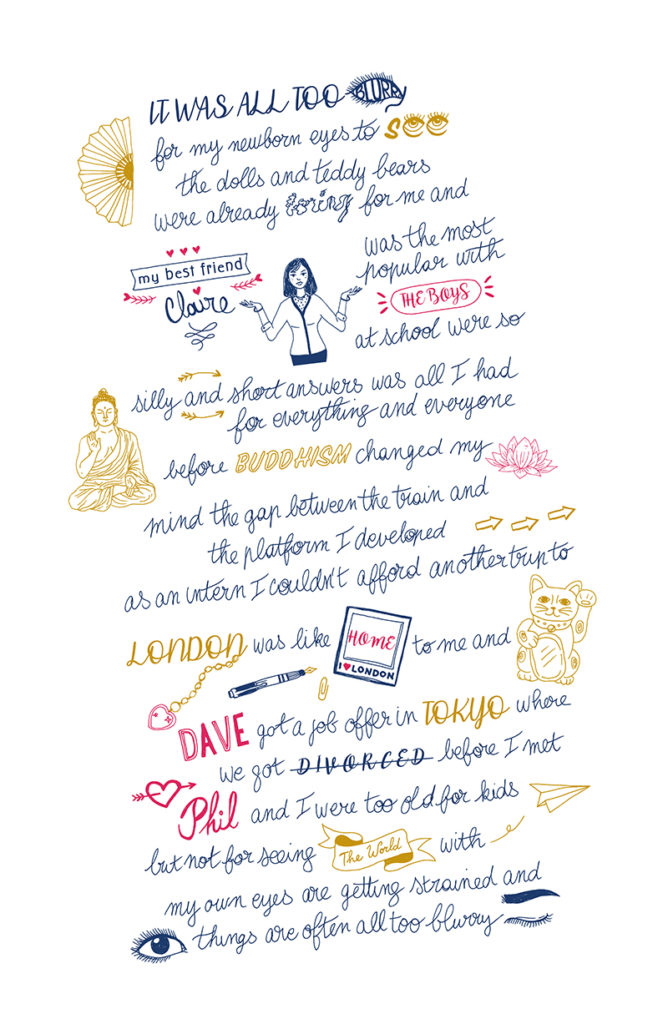 IT WAS ALL TOO BLURRY
for my newborn eyes to SEE
the dolls and teddy bears
were already boring for me and
my best friend
Claire
was the most
popular with
THE BOYS
at school were so
silly and short answers was all I had
for everything and everyone
before BUDDHISM changed my
mind the gap between the train and
the platform I developed
as an intern I couldn't afford another trip to
LONDON was like HOME to me and
I ♥ LONDON
DAVE got a job offer in TOKYO where
we got DIVORCED before I met
Phil and I were too old for kids
but not for seeing The World with
my own eyes are getting strained and
things are often all too blurry